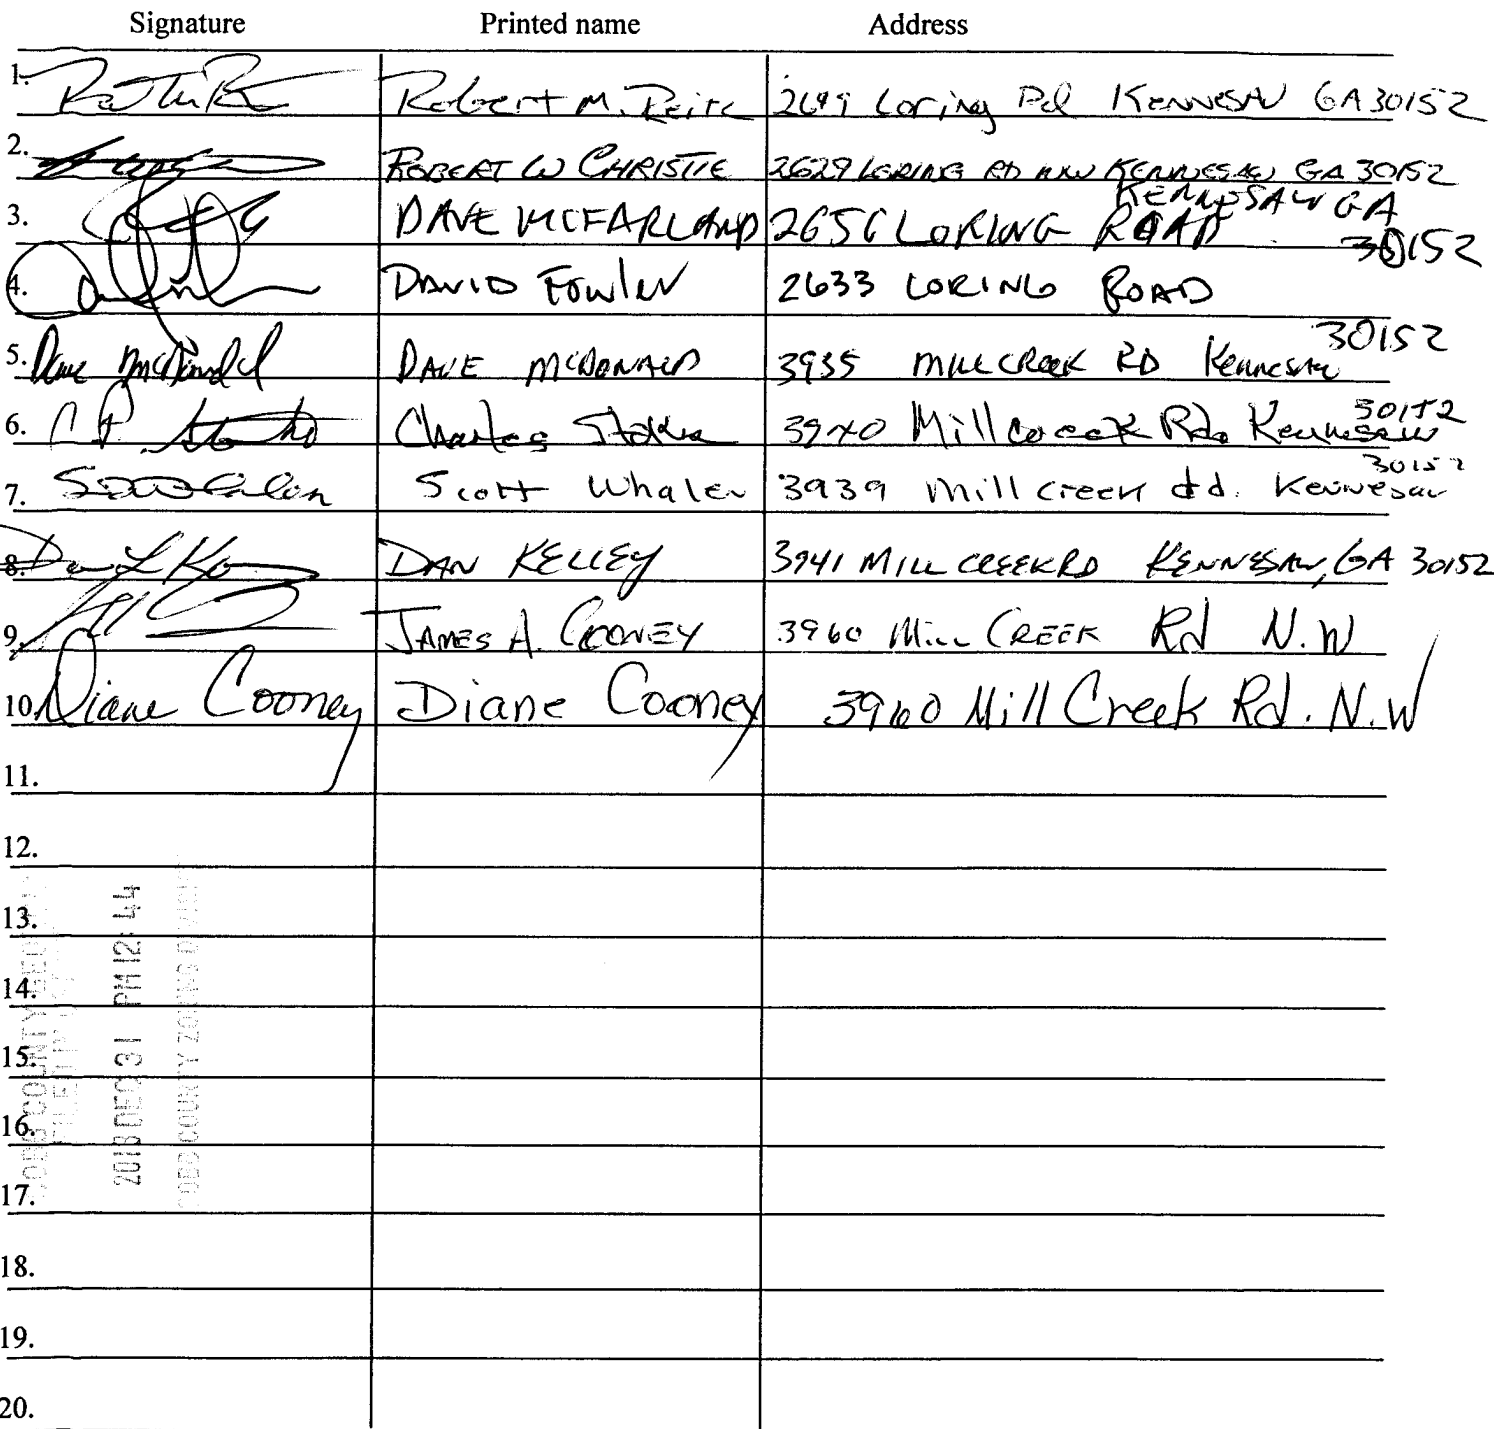 Signature Printed name Address
1. Robert M. Loring Rd Kennesaw GA 30152
2. ROBERT W CHRISTIE 2629 LORING RD NW KENNESAW GA 30152
KENNESAW GA
3. DAVE MCFARLAND 2656 LORING ROAD 30152
4. DAVID FOWLER 2633 LORING ROAD
30152
5. Dave McDonald DAVE MCDONALD 3935 MILL CREEK RD Kennesaw
30152
6. Charles 3940 Mill Creek Rd. Kennesaw
30152
7. Scott Whalen 3939 Mill Creek Rd. Kennesaw
8. DAN KELLEY 3941 MILL CREEK RD KENNESAW, GA 30152
9. JAMES A. COONEY 3960 MILL CREEK Rd N.W
10. Diane Cooney Diane Cooney 3960 Mill Creek Rd. N.W
11.
12.
13.
14.
15.
16.
17.
18.
19.
20.
COBB COUNTY
2013 DEC 31 PM 12:44
COBB COUNTY ZONING